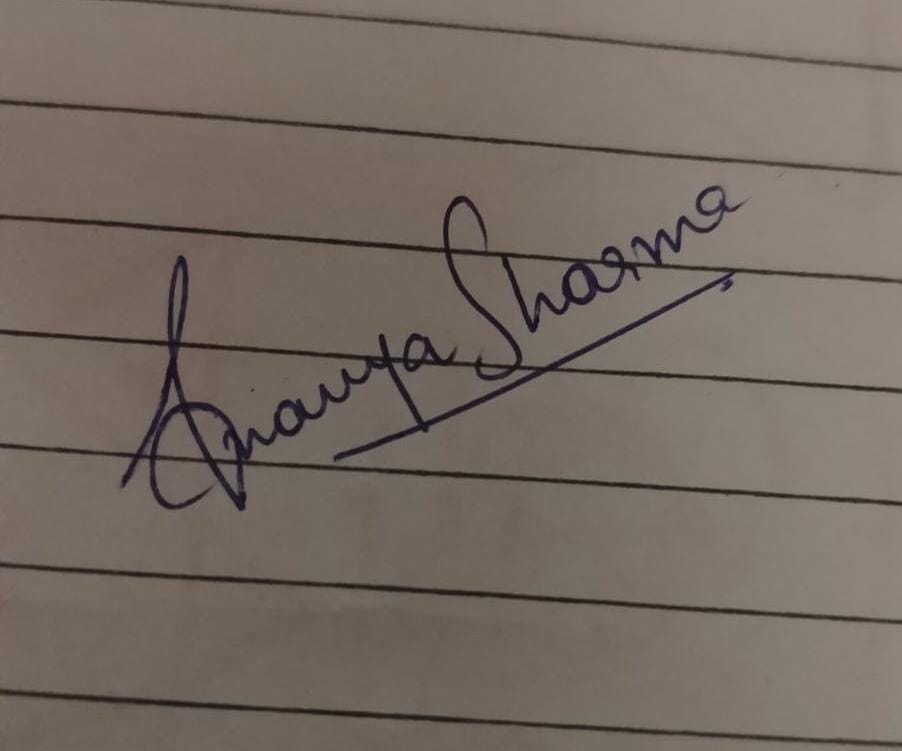 Ananya Sharma